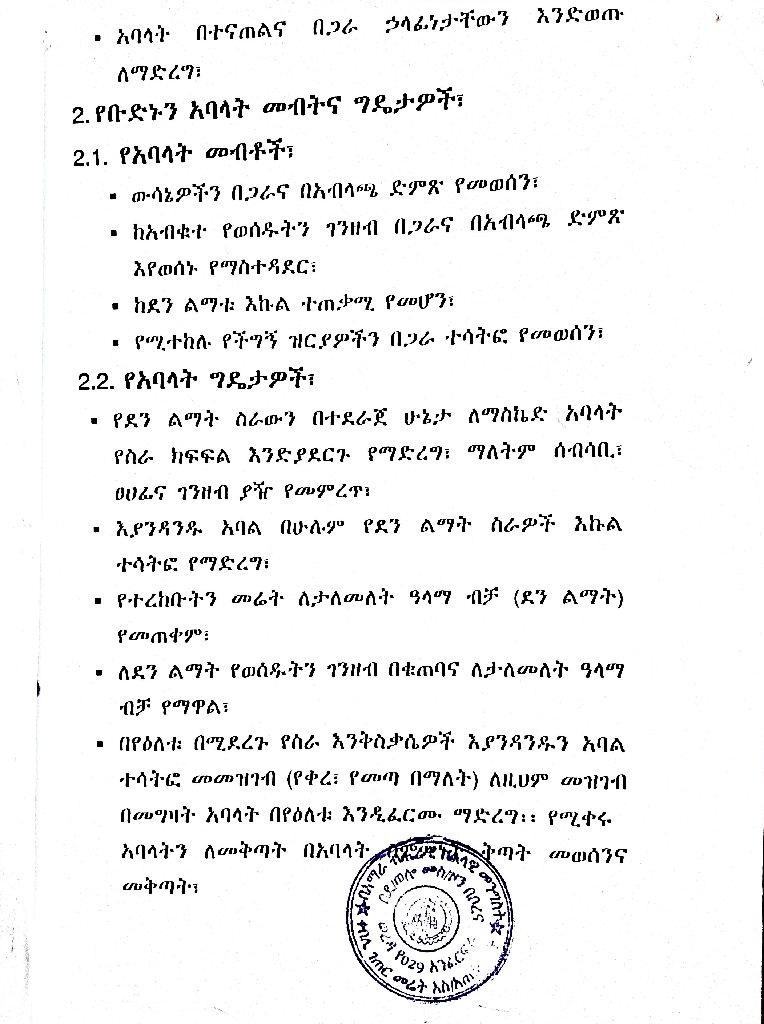 ▪ አባላት በተናጠልና በጋራ ኃላፊነታቸውን እንድወጡ
ለማድረግ፣
2. የቡድኑን አባላት መብትና ግዴታዎች፣
2.1. የአባላት መብቶች፣
▪ ውሳኔዎችን በጋራና በአብላጫ ድምጽ የመወሰን፣
▪ ከአብቁተ የወሰዱትን ገንዘብ በጋራና በአብላጫ ድምጽ
እየወሰኑ የማስተዳደር፣
▪ ከደን ልማቱ እኩል ተጠቃሚ የመሆን፣
▪ የሚተከሉ የችግኝ ዝርያዎችን በጋራ ተሳትፎ የመወሰን፣
2.2. የአባላት ግዴታዎች፣
▪ የደን ልማት ስራውን በተደራጀ ሁኔታ ለማስኬድ አባላት
የስራ ክፍፍል እንድያደርጉ የማድረግ፣ ማለትም ሰብሳቢ፣
ፀሀፊና ገንዘብ ያዥ የመምረጥ፣
▪ እያንዳንዱ አባል በሁሉም የደን ልማት ስራዎች እኩል
ተሳትፎ የማድረግ፣
▪ የተረከቡትን መሬት ለታለመለት ዓላማ ብቻ (ደን ልማት)
የመጠቀም፣
▪ ለደን ልማት የወሰዱትን ገንዘብ በቁጠባና ለታለመለት ዓላማ
ብቻ የማዋል፣
▪ በየዕለቱ በሚደረጉ የስራ እንቅስቃሴዎች እያንዳንዱን አባል
ተሳትፎ መመዝገብ (የቀረ፣ የመጣ በማለት) ለዚህም መዝገብ
በመግዛት አባላት በየዕለቱ እንዲፈርሙ ማድረግ፡፡ የሚቀሩ
አባላትን ለመቅጣት በአባላት ቅጣት መወሰንና
መቅጣት፣
በአማራ ብሔራዊ ክልላዊ መንግስት
ወረዳ የ029 አንፈርፍራ
ቀበሌ ገጠር መሬት